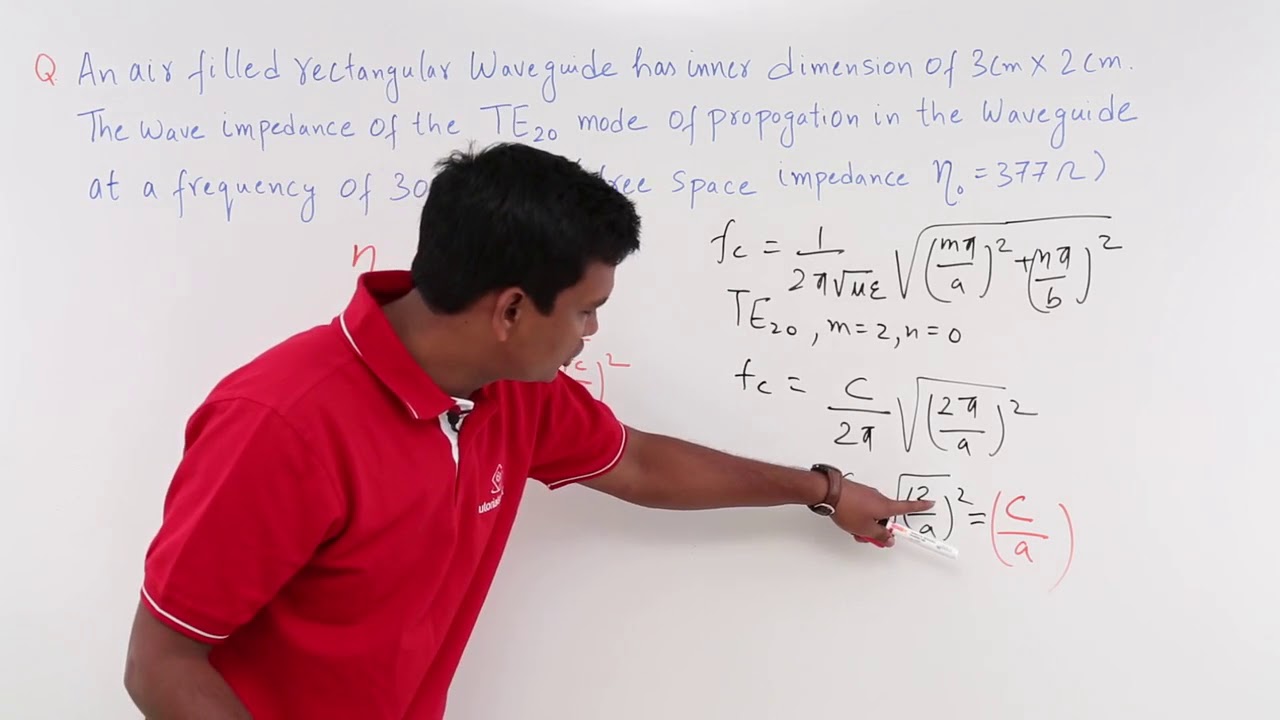 Q An air filled rectangular Waveguide has inner dimension of 3cm x 2cm.
The wave impedance of the TE₂₀ mode of propogation in the Waveguide
at a frequency of 30 free space impedance η₀ = 377Ω)
η
fc = 1/(2π√με) √((mπ/a)² + (nπ/b)²)
TE₂₀, m=2, n=0
fc = C/2π √(2π/a)²
c )²
√(2/a)² = (C/a)